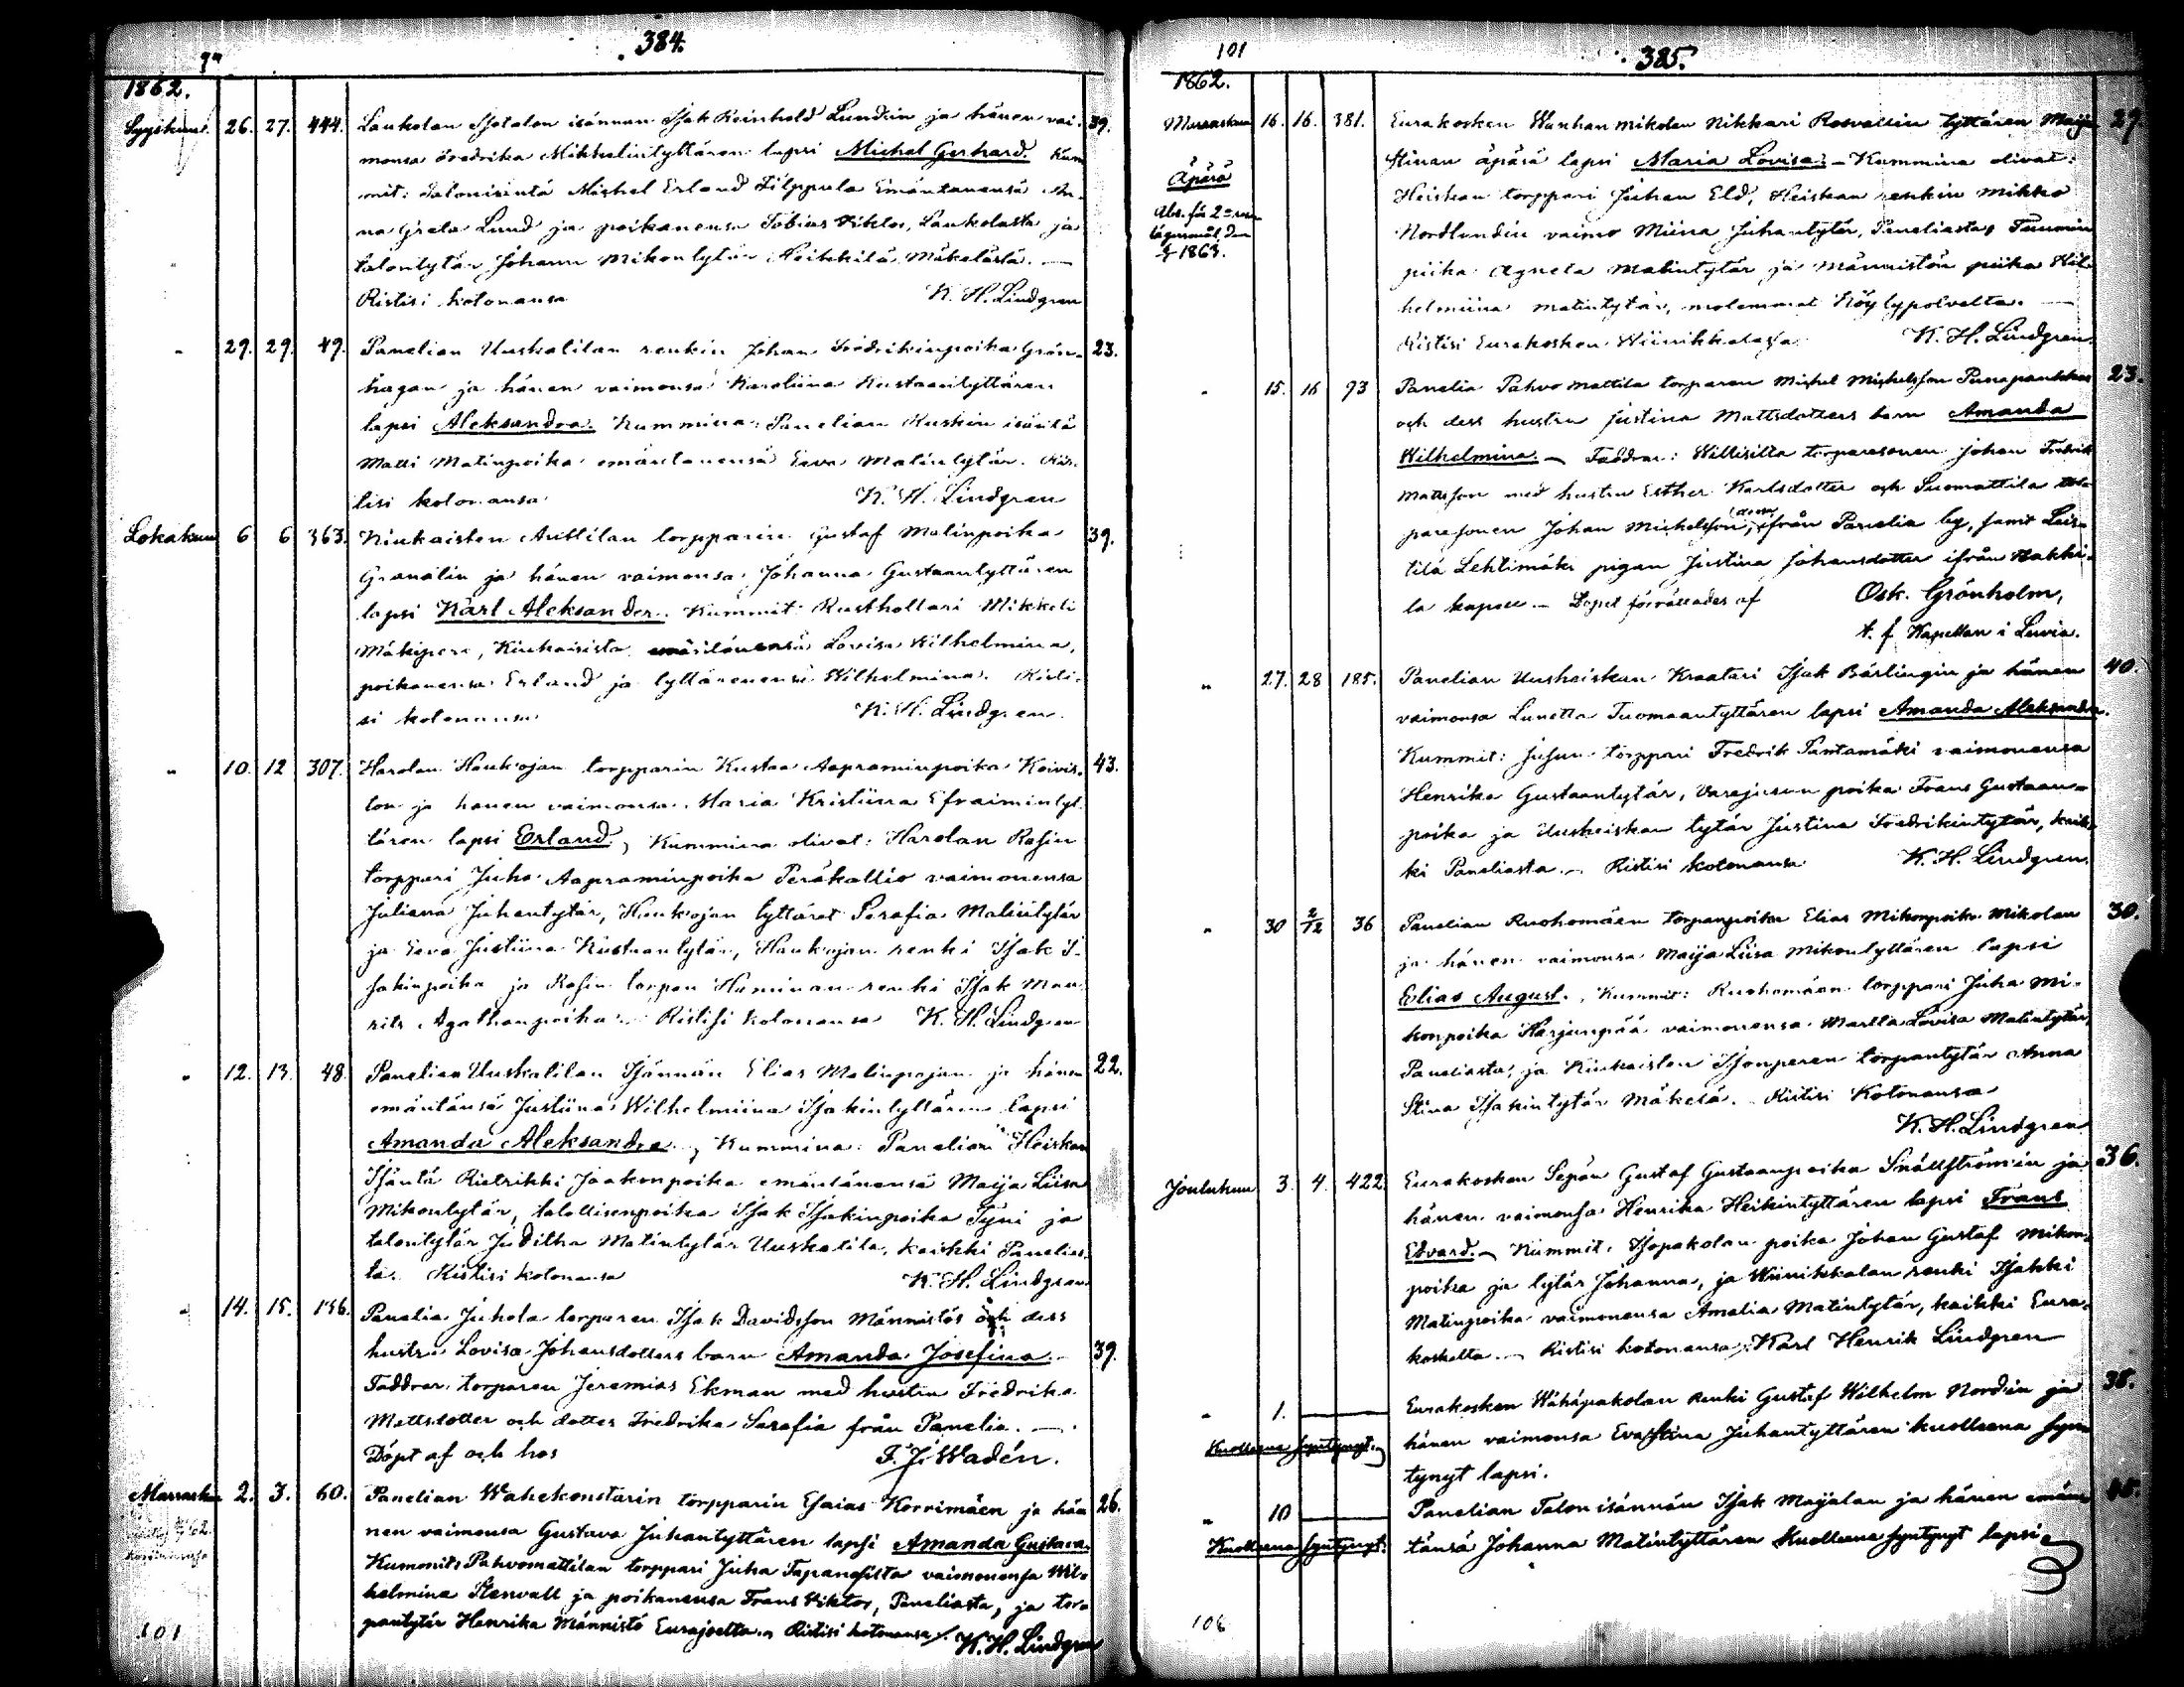 384.
1862.
Syyskuu 26. 27. 444. Laukolan Isotalon isännän Isak Reinhold Lundin ja hänen vai- 39.
monsa Fredrika Mikkelintyttären lapsi Michel Gerhard. Kum
mit: Talonisäntä Michel Erland Filppula Emäntänensä An-
na Greta Lund ja poikanensa Tobias Viktor, Laukolasta ja
talontytär Johanna Mikontytär Heikkilä Mäkelästä. —
Ristisi kotonansa K. H. Lindgren
" 29. 29. 49. Panelian Uuskalilan renkin Johan Fredrikinpoika Grön- 23.
hagan ja hänen vaimonsa Karoliina Kustaantyttären
lapsi Aleksandra. Kummina: Panelian Kuskin isäntä
Matti Matinpoika emäntänensä Eeva Matintytär. Ris-
tisi kotonansa K. H. Lindgren
Lokakuu 6 6 363. Kiukaisten Anttilan torpparin Gustaf Matinpoika 39.
Granalin ja hänen vaimonsa Johanna Gustaantyttären
lapsi Karl Aleksander. Kummit: Rusthollari Mikkeli
Mäkipere, Kiukaisista emäntänensä Lovisa Wilhelmina,
poikanensa Erland ja tyttärenensä Wilhelmina. Risti-
si kotonansa K. H. Lindgren.
" 10. 12 307. Harolan Haukojan torpparin Kustaa Aapraminpoika Koivis- 43.
ton ja hänen vaimonsa Maria Kristiina Efraimintyt
tären lapsi Erland, Kummina olivat: Harolan Rasin
torppari Juha Aapraminpoika Peräkallio vaimonensa
Juliana Juhantytär, Haukojan tyttäret Serafia Matintytär
ja Eeva Justiina Kustaantytär, Haukojan renki Isak I-
sakinpoika ja Rasin torpan Huminan renki Isak Mau
rits Agathanpoika. Ristisi kotonansa K. H. Lindgren
" 12. 13. 48. Panelian Uuskalilan Isännän Elias Matinpojan ja hänen 22.
emäntänsä Justiina Wilhelmiina Isakintyttären lapsi
Amanda Aleksandra, Kummina: Panelian Heiskan
Isäntä Rietrikki Jaakonpoika emäntänensä Maija Liisa
Mikontytär, talollisenpoika Isak Isakinpoika Tyni ja
talontytär Juditha Matintytär Uuskalila, kaikki Panelias-
ta. Ristisi kotonansa K. H. Lindgren
" 14. 15. 156. Panelia Juhola torparen Isak Davidsson Männistös och dess
hustru Lovisa Johansdotters barn Amanda Josefina. 39.
Faddrar: torparen Jeremias Ekman med hustru Fredrika
Mattsdotter och dotter Fredrika Serafia från Panelia. —
Döpt af och hos F. J. Wadén.
Marraskuu 2. 3. 60. Panelian Wahekonstarin torpparin Esaias Korrimäen ja hä- 26.
nen vaimonsa Gustava Juhantyttären lapsi Amanda Gustava.
Kummit: Pahvomattilan torppari Juha Tapanasilta vaimonensa Wil-
helmina Stenvall ja poikanensa Frans Viktor, Paneliasta, ja tor-
pantytär Henrika Männistö Eurajoelta. Ristisi kotonansa K. H. Lindgren
101
101
385.
1862.
Marraskuu 16. 16. 381. Eurakosken Wanhan mikolan Nikkari Rosvallin tyttären Maija 29
Stinan äpärä lapsi Maria Lovisa. — Kummina olivat:
Äpärä Heiskan torppari Juhan Eld, Heiskan renkin Mikko
Nordlundin vaimo Miina Juhantytär, Paneliasta, Tuomin
1863. piika Agneta Matintytär ja Männistön piika Wil-
helmiina Matintytär, molemmat Köylypolvelta. —
Ristisi Eurakosken Wiinikkalassa K. H. Lindgren.
" 15. 16 73 Panelia Pahvo Mattila torparen Michel Michelsson Punapaukkas 23.
och dess hustru Justina Mattsdotters barn Amanda
Wilhelmina. — Faddrar: Willisilta torparesonen Johan Fredrik
Mattsson med hustru Esther Karlsdotter och Suomattila tor-
paresonen Johan Michelsson, ifrån Panelia by, samt Leis-
tilä Lehtimäki pigan Justina Johansdotter ifrån Nakki-
la kapell. — Dopet förrättades af Osk. Grönholm,
t. f. Kapellan i Luvia.
" 27. 28 185. Panelian Uusheiskan Kraatari Isak Bärlingin ja hänen 40.
vaimonsa Lunetta Tuomaantyttären lapsi Amanda Aleksandra.
Kummit: Jusun torppari Fredrik Puntamäki vaimonensa
Henrika Gustaantytär, Varajusun poika Frans Gustaan-
poika ja Uusheiskan tytär Justina Fredrikintytär, kaik-
ki Paneliasta. — Ristisi kotonansa K. H. Lindgren.
" 30 2/12 36 Panelian Ruohomäen torpanpoika Elias Mikonpoika Mikolan 30.
ja hänen vaimonsa Maija Liisa Mikontyttären lapsi
Elias August. Kummit: Ruohomäen torppari Juha Mi-
konpoika Harjunpää vaimonensa Martta Lovisa Matintytär,
Paneliasta, ja Kiukaisten Isonperen torpantytär Anna
Stina Isakintytär Mäkelä. Ristisi Kotonansa
K. H. Lindgren
Joulukuu 3. 4. 422. Eurakosken Sepän Gustaf Gustaanpoika Snällströmin ja 36.
hänen vaimonsa Henrika Heikintyttären lapsi Frans
Edvard. — Kummit: Isopakolan poika Johan Gustaf Mikon-
poika ja tytär Johanna, ja Wiinikkalan renki Isakki
Matinpoika vaimonensa Amalia Matintytär, kaikki Eura-
koskelta. — Ristisi kotonansa: Karl Henrik Lindgren
" 1. — Eurakosken Wähäpakolan Renki Gustaf Wilhelm Nordin ja 38.
Kuolleena syntynyt. hänen vaimonsa Eva Stina Juhantyttären kuolleena syn-
tynyt lapsi.
" 10 — Panelian Talon isännän Isak Maijalan ja hänen emän- 45.
Kuolleena syntynyt. tänsä Johanna Matintyttären Kuolleena syntynyt lapsi
106